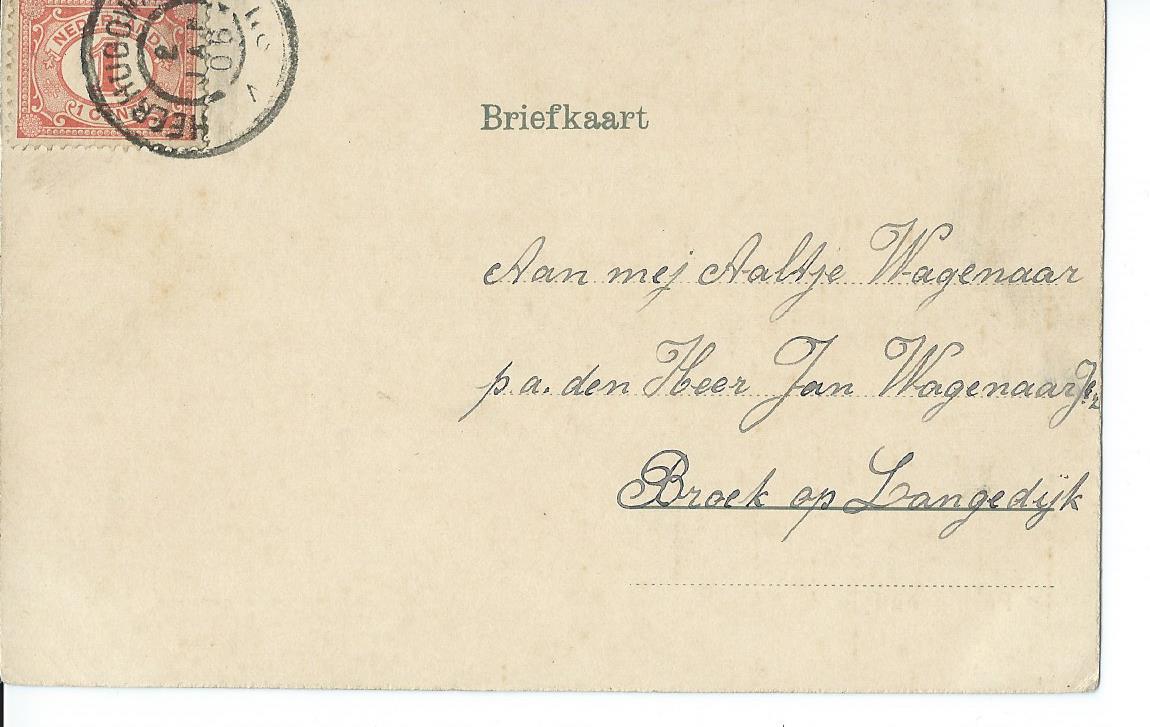 NEDERLAND
1
1 CENT
HEERHUGOW
2 JAN 06
Briefkaart
Aan mej Aaltje Wagenaar
p.a. den Heer Jan Wagenaar Jz
Broek op Langedijk